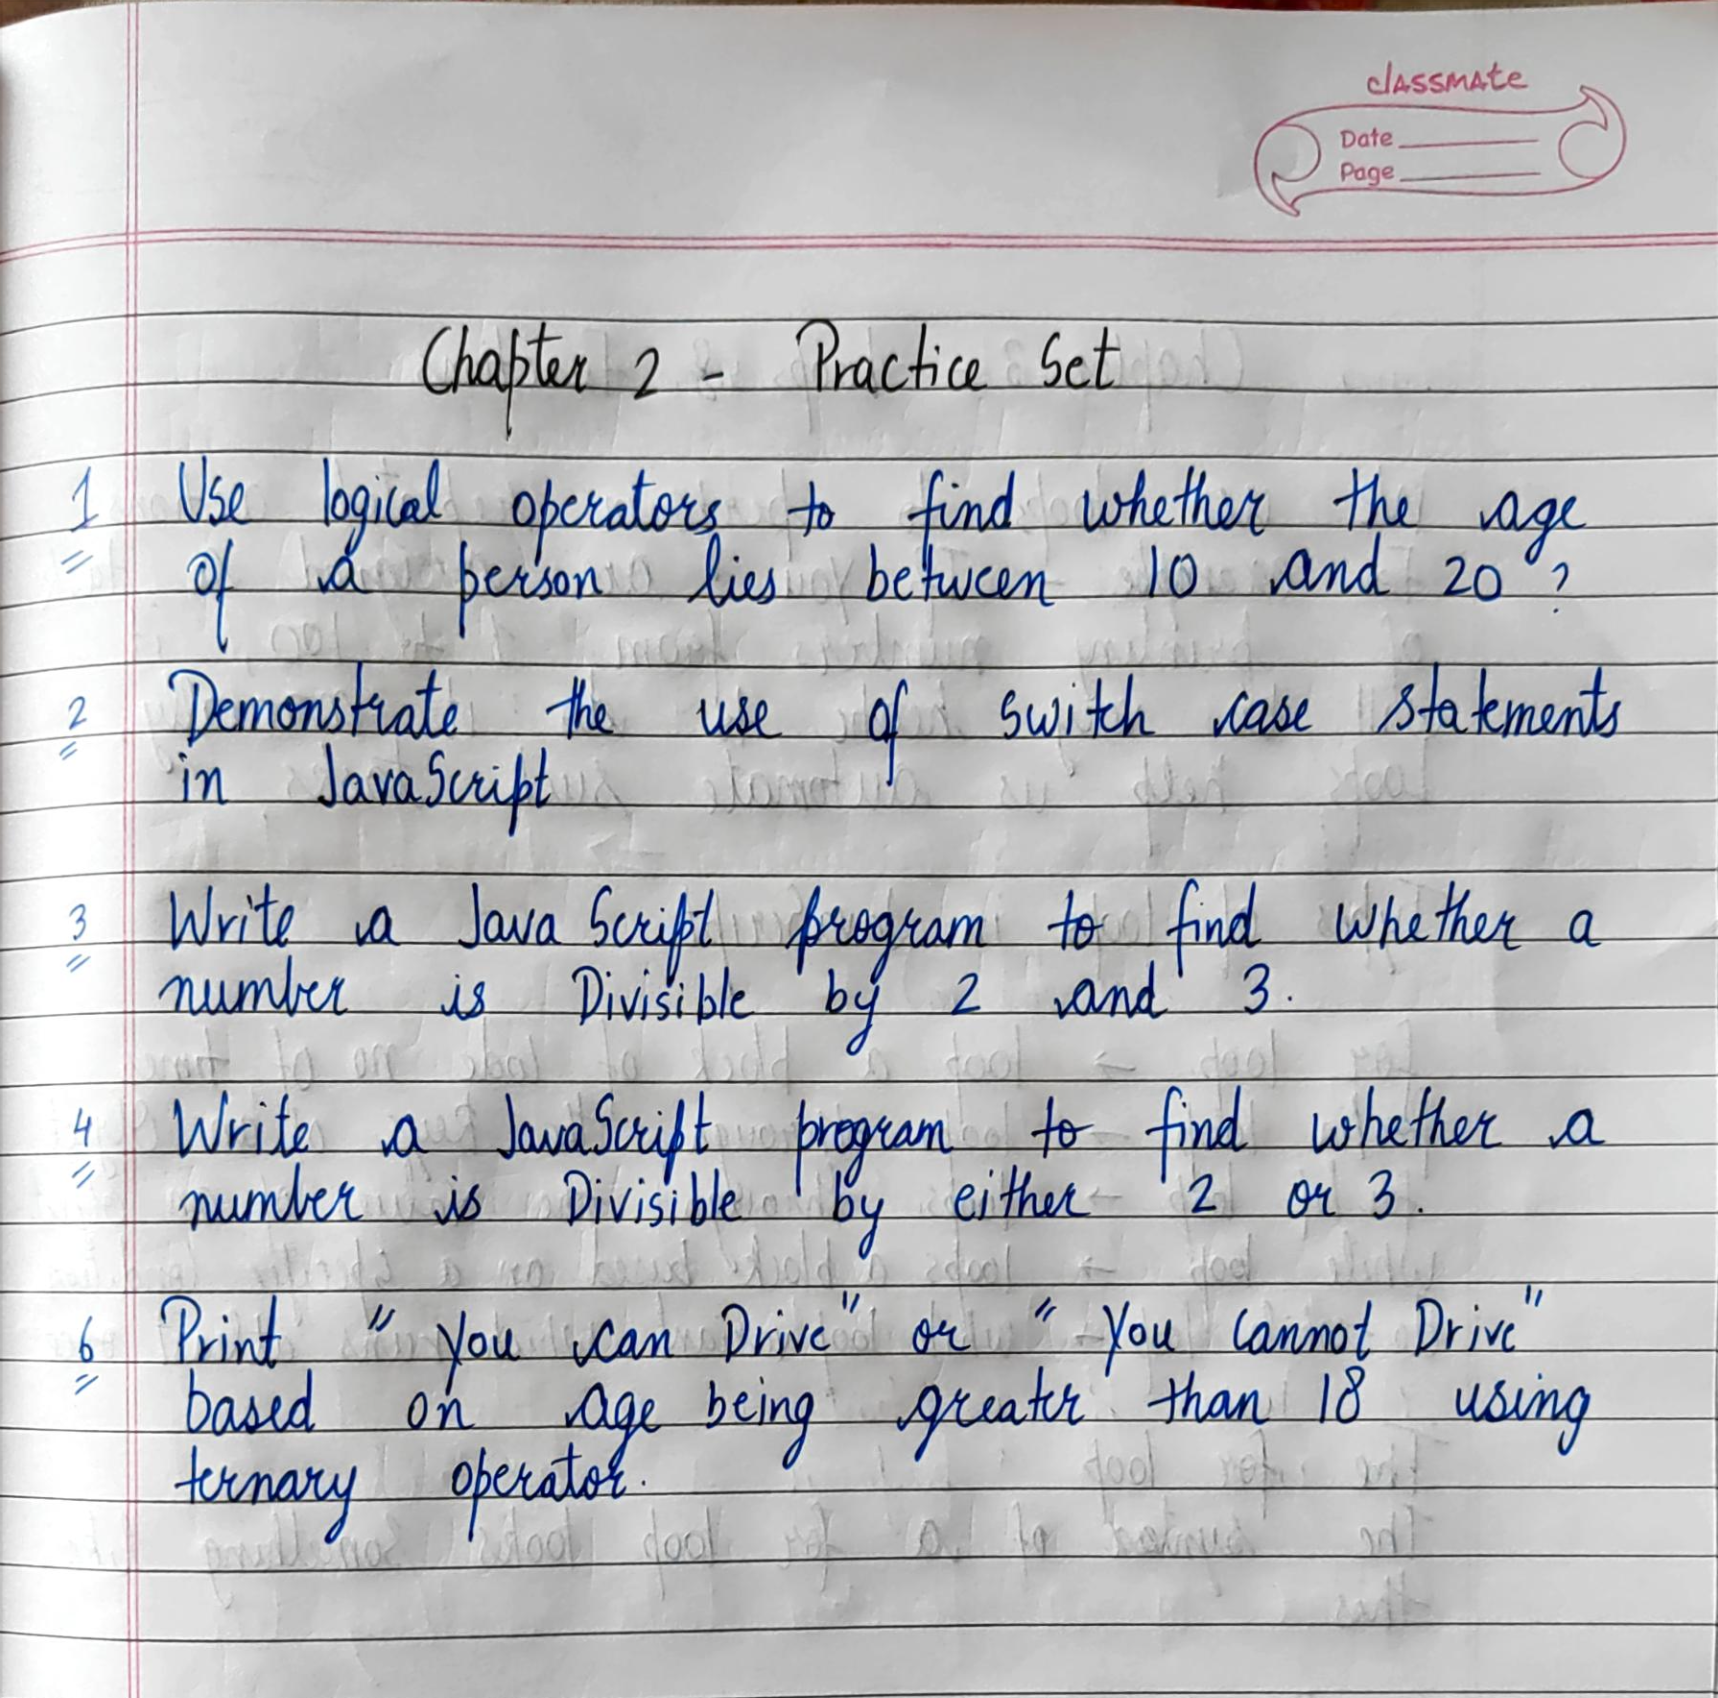 classmate
Date
Page
Chapter 2 - Practice Set
1 Use logical operators to find whether the age
of a person lies between 10 and 20 ?
2 Demonstrate the use of switch case statements
in JavaScript
3 Write a Java Script program to find whether a
number is Divisible by 2 and 3.
4 Write a JavaScript program to find whether a
number is Divisible by either 2 or 3.
6 Print " you can Drive" or " You cannot Drive"
based on age being greater than 18 using
ternary operator.